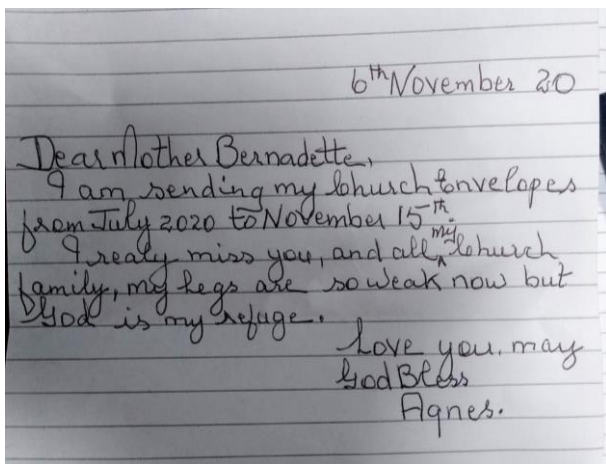 6th November 20
Dear Mother Bernadette,
I am sending my Church Envelopes
from July 2020 to November 15th.
I realy miss you, and all my Church
family, my Legs are so weak now but
God is my refuge.
Love you. may
God Bless
Agnes.